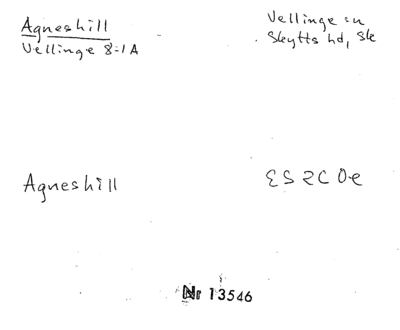 Agneshill
Vellinge 8:1A
Vellinge sn
Skytts hd, Sk
Agneshill
ES 2C 0e
Nr 13546